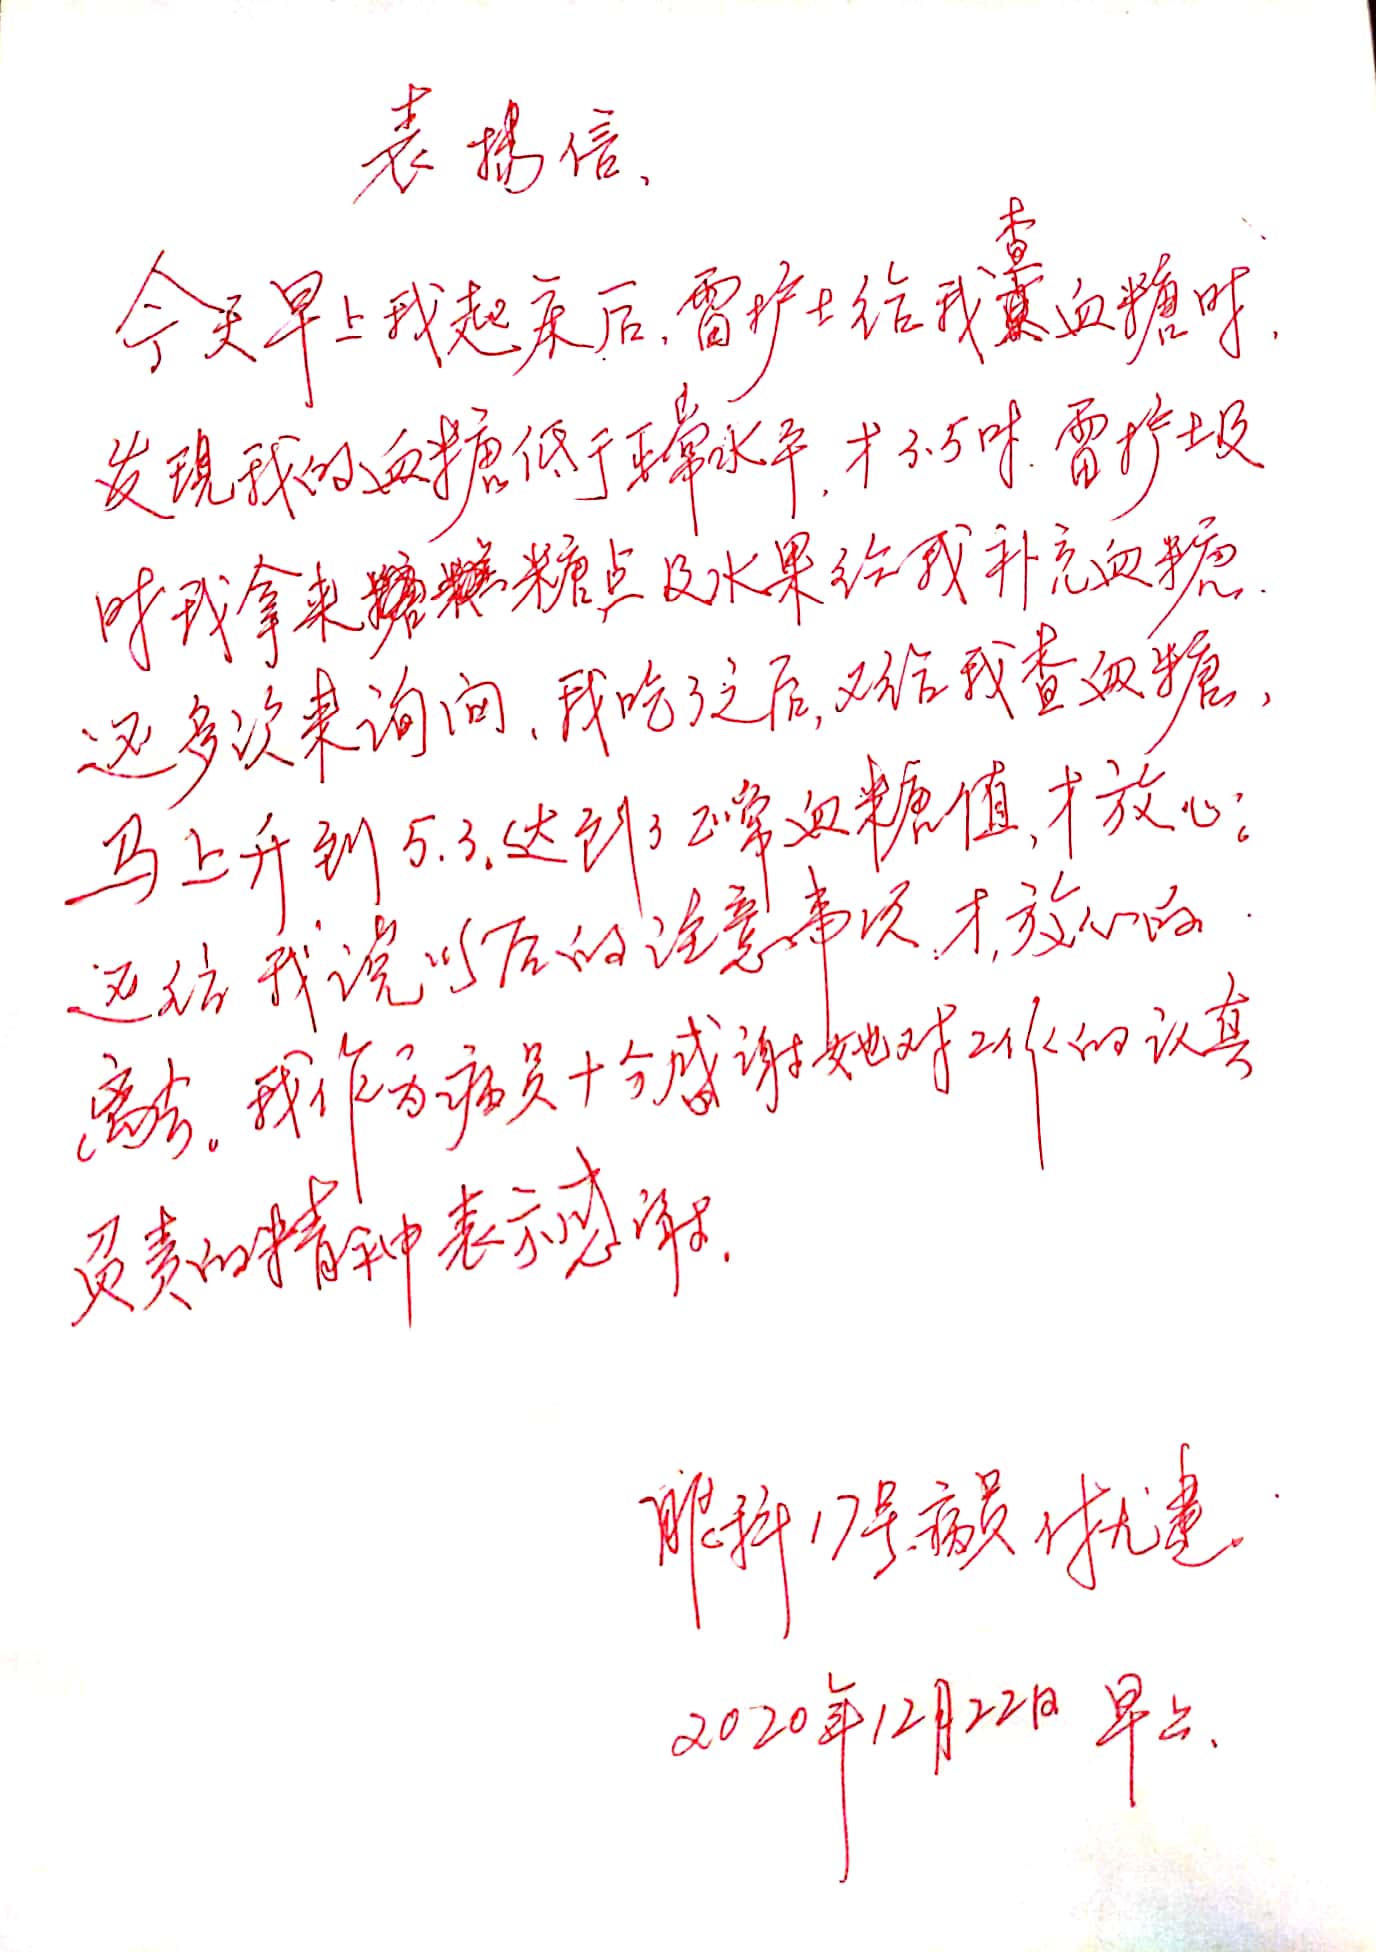 表扬信、
今天早上我起床后，雷护士给我查血糖时，
发现我的血糖低于正常水平，才3.5时.雷护士及
时我拿来糖点及水果给我补充血糖.
还多次来询问、我吃了之后，又给我查血糖，
马上升到5.3.达到了正常血糖值，才放心；
还给我说以后的注意事项，才放心的
离去。我作为病员十分感谢她对工作的认真
负责的精神表示感谢.
眼科17号病员付尤
2020年12月22日 早上、